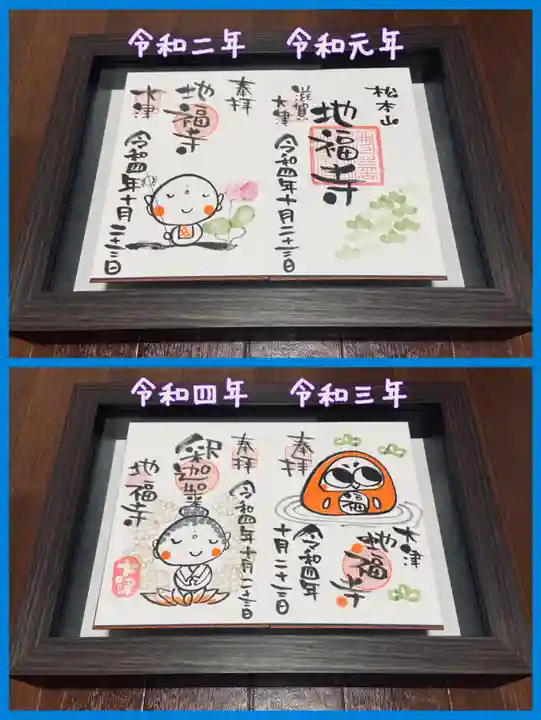 令和二年
令和元年
松本山
地福寺
滋賀
大津
令和四年十月二十三日
奉拝
地福寺
大津
令和四年十月二十三日
令和四年
令和三年
奉拝
福
大津
地福寺
令和四年
十月二十三日
奉拝
釈迦楽
地福寺
令和四年十月二十三日